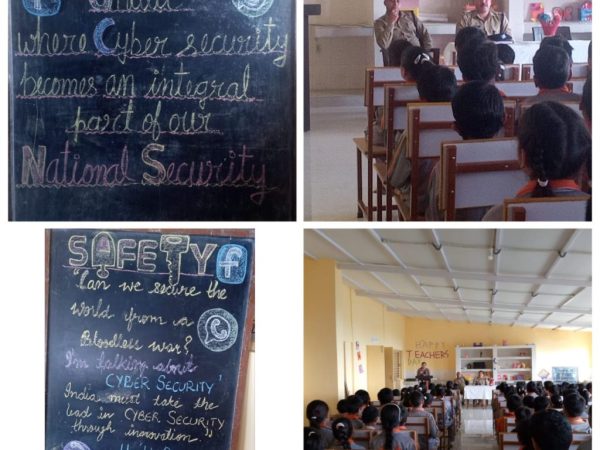 where Cyber security
becomes an integral
part of our
National Security
SAFETY f
"Can we secure the
world from a
Bloodless war?
I'm talking about
CYBER SECURITY'
India must take the
lead in CYBER SECURITY
through innovation"
HAPPY
TEACHERS
DAY